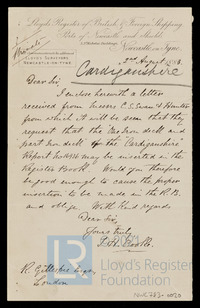 Lloyd's Register of British & Foreign Shipping
Ports of Newcastle and Shields
Newcastle on Tyne
Private
LLOYD'S SURVEYORS
NEWCASTLE-ON-TYNE
August
Cardiganshire
Dear Sir,
I enclose herewith a letter
received from Messrs C. S. Swan & Hunter
from which it will be seen that they
request that the One Iron deck and
part Iron deck of the "Cardiganshire"
Report No may be inserted in the
Register Book. Would you therefore
be good enough to cause the proper
insertion to be made in the R.B.
and oblige. With kind regards
Dear Sir,
Yours truly
R. Gillespie Esqre
London
Lloyd's Register
Foundation